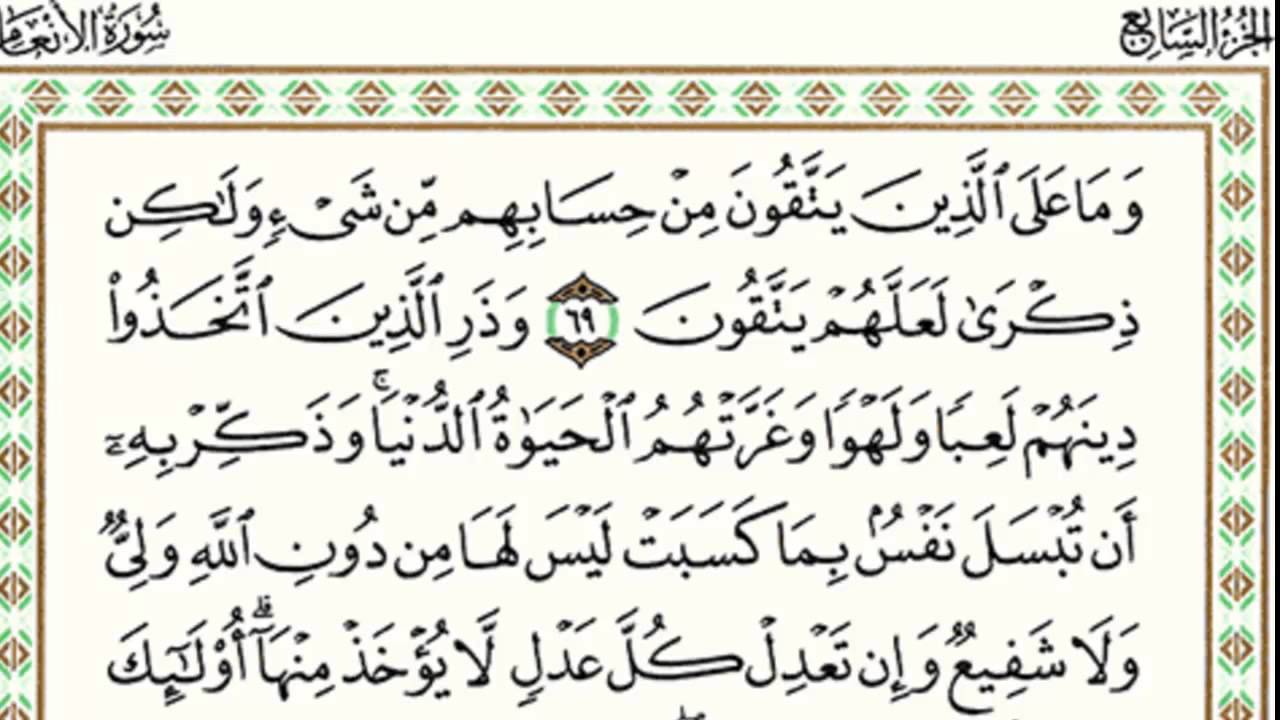 الجزء السابع
سورة الأنعام
وَمَا عَلَى ٱلَّذِينَ يَتَّقُونَ مِنْ حِسَابِهِم مِّن شَىْءٍ وَلَٰكِن
ذِكْرَىٰ لَعَلَّهُمْ يَتَّقُونَ ٦٩ وَذَرِ ٱلَّذِينَ ٱتَّخَذُوا۟
دِينَهُمْ لَعِبًا وَلَهْوًا وَغَرَّتْهُمُ ٱلْحَيَوٰةُ ٱلدُّنْيَا ۚ وَذَكِّرْ بِهِۦٓ
أَن تُبْسَلَ نَفْسٌۢ بِمَا كَسَبَتْ لَيْسَ لَهَا مِن دُونِ ٱللَّهِ وَلِىٌّ
وَلَا شَفِيعٌ وَإِن تَعْدِلْ كُلَّ عَدْلٍ لَّا يُؤْخَذْ مِنْهَآ ۗ أُو۟لَٰٓئِكَ